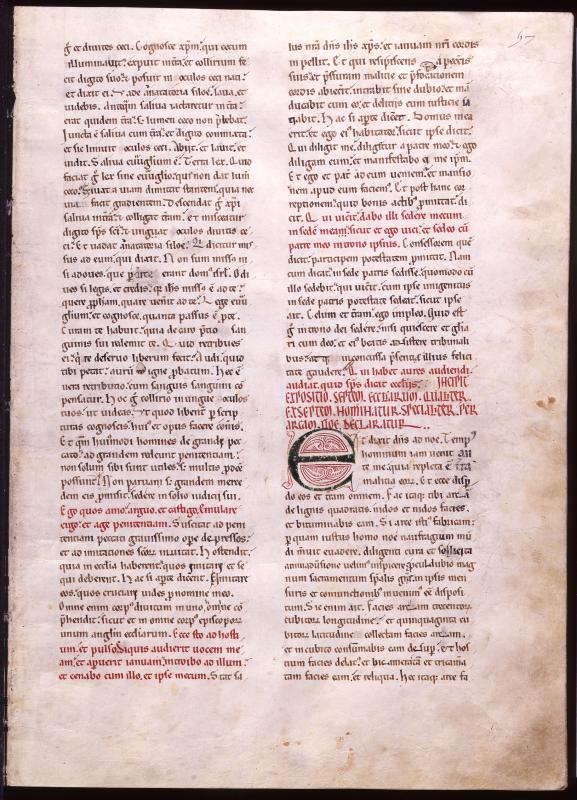 g̃ et diuites ceci. Cognosce xp̃m. qui cecum
illuminauit. expuit in t̃ra. et collirium fe
cit digito suo. et posuit in oculos ceci nati.
et dixit ei. Vade ad natatoria siloe. laua. et
uidebis. Anteq̃m saliua iactaretur in t̃ra.
erat quidem t̃ra. sed lumen ceco non p̃bebat.
Iuncta ẽ saliua cum t̃ra. et digito commixta.
et sic liniuit oculos ceci. Abiit. et lauit. et
uidit. Saliua euũglium ẽ. Terra lex. Quid
faciat g̃ lex sine euũglio. qui non dat lum̃
ceco. Siue
saliua in t̃ra. et colligat t̃ram. et misceatur
digito sp̃s sc̃i. et unguat oculos diuitis ce
ci. Et uadat ad natatoria siloe. Q̃ dicitur mis
sus ad eum. qui dixit. Non sum missus ni
si ad oues. que p̃ierant domus isrl̃. Si di
ues si legis. et credis. q̃ ih̃s missus ẽ ad te.
quere pp̃ham. quare uenit ad te. Lege euũ
glium. et cognosce. quanta passus ẽ p̃ te.
Curam te habuit. quia de caro p̃cio san
guinis sui redemit te. Quid retribues
ei. q̃ te de seruo liberum fecit. Audi. quid
tibi petat. aurum igne p̃batum. Hec ẽ
uera retributio. cum sanguis sanguini co
pensatur. Hoc g̃ collirio in ungue oculos
tuos. ut uideas. Et quod libenter p̃ scrip
turas cognoscis. huius et opus facere conis.
Et q̃m huiusmodi homines de grandi pec
cato. ad grandem relinunt penitentiam.
non solum sibi sunt utiles. sed multis p̃dẽe
possunt. Non paruam sed grandem merce
dem eis p̃misit. sedere in solio iudicii sui.
Ego quos amo arguo. et castigo. Emulare
ergo et age penitentiam. Suscitat ad peni
tentiam peccati grauissimo op̃e depressos.
et ad imitationes sc̃orum inuitat. Hos ostendit.
quia in ecclia haberent. quos imitari et se
qui deberent. Hac si ap̃te diceret. Emitare
eos. quos cruciari uides p̃ nomine meo.
Omne enim corp' diuitum in uno. omne cõ
p̃hendit. sicut et in omne corp' episcoporum
unum anglm eccliarum. Ecce sto ad hosti
um. et pulso. Siquis audierit uocem me
am. et apuerit ianuam. introibo ad illum.
et cenabo cum illo. et ipse mecum. Stat sa
57
lus nr̃a dñs ih̃s xp̃s. et ianuam nr̃i cordis
in pellit. Ut qui resipiscens a peccatis
suis. et p̃ssuram malicie et p̃focationem
cordis abiecerit. intrabit sine dubio. et mã
ducabit cum eo. et deliciis cum iusticie sa
ciabit. Hac si ap̃te diceret. Domus mea
erit. et ego ei' habitator. sicut ipse dicit.
Qui diligit me. diligetur a patre meo. et ego
diligam eum. et manifestabo ei me ip̃m.
Et ego et pat̃ ad eum ueniem'. et mansio
nem apud eum faciem'. Et post hanc cor
reptionem. quid bonis actib' p̃mittat. di
cit. Qui uicerit. dabo illi sedere mecum
in sede mea. sicut et ego uici. et sedeo cũ
patre meo in trono ipsius. Confessorem quẽ
dicit. participem potestatem p̃mittit. Nam
cum dicat. in sede patris sedisse. quomodo cũ
illo sedebit. qui uicerit. cum ipse unigenitus
in sede patris potestate sedeat. sicut ipse
ait. Celum et t̃ram ego impleo. Quid est
g̃ in trono dei sedere. nisi quiescere et glia
ri cum deo. et ei' beatis adsistere tribunali
bus. atq̃ inconcussa p̃sentia illius felici
tate gaudere. Qui habet aures audiendi
audiat. quid sp̃s dicit eccliis. INCIPIT
EXPOSITIO. SEPTEM. ECCLARUM. QUALITER.
EX SEPTEM. NOMINATUR. SPECIALITER. PER
ARCAM. NOE. DECLARATUR.
Et dixit dñs ad noe. Temp'
hominum iam uenit an
te me. quia repleta ẽ t̃ra
malicia eorum. Et ecce disp̃
do eos et t̃ram omnem. Fac itaq̃ tibi arcam
de lignis quadratis. nidos et nidos facies.
et bituminabis eam. Si arce isti' fabricam.
p̃ quam iustus homo noe naufragium mũ
di meruit euadere. diligenti cura et sollicita
animaduersione uelim' inspicere. p̃cul dubio mag
num sacramentum sp̃alis gr̃am ipsis men
suris et coniunctionib' inuenim' eẽ disposi
tum. Sic enim ait. Facies arcam trecentorum
cubitorum longitudine. et quinquaginta cu
bitorum latitudine collectam facies arcam.
et in cubito consum̃abis eam desup̃. et hos
tium facies de lat̃e. et bicameratã et tricamã
tam facies eam. et reliqua. Hec itaq̃ arce fa